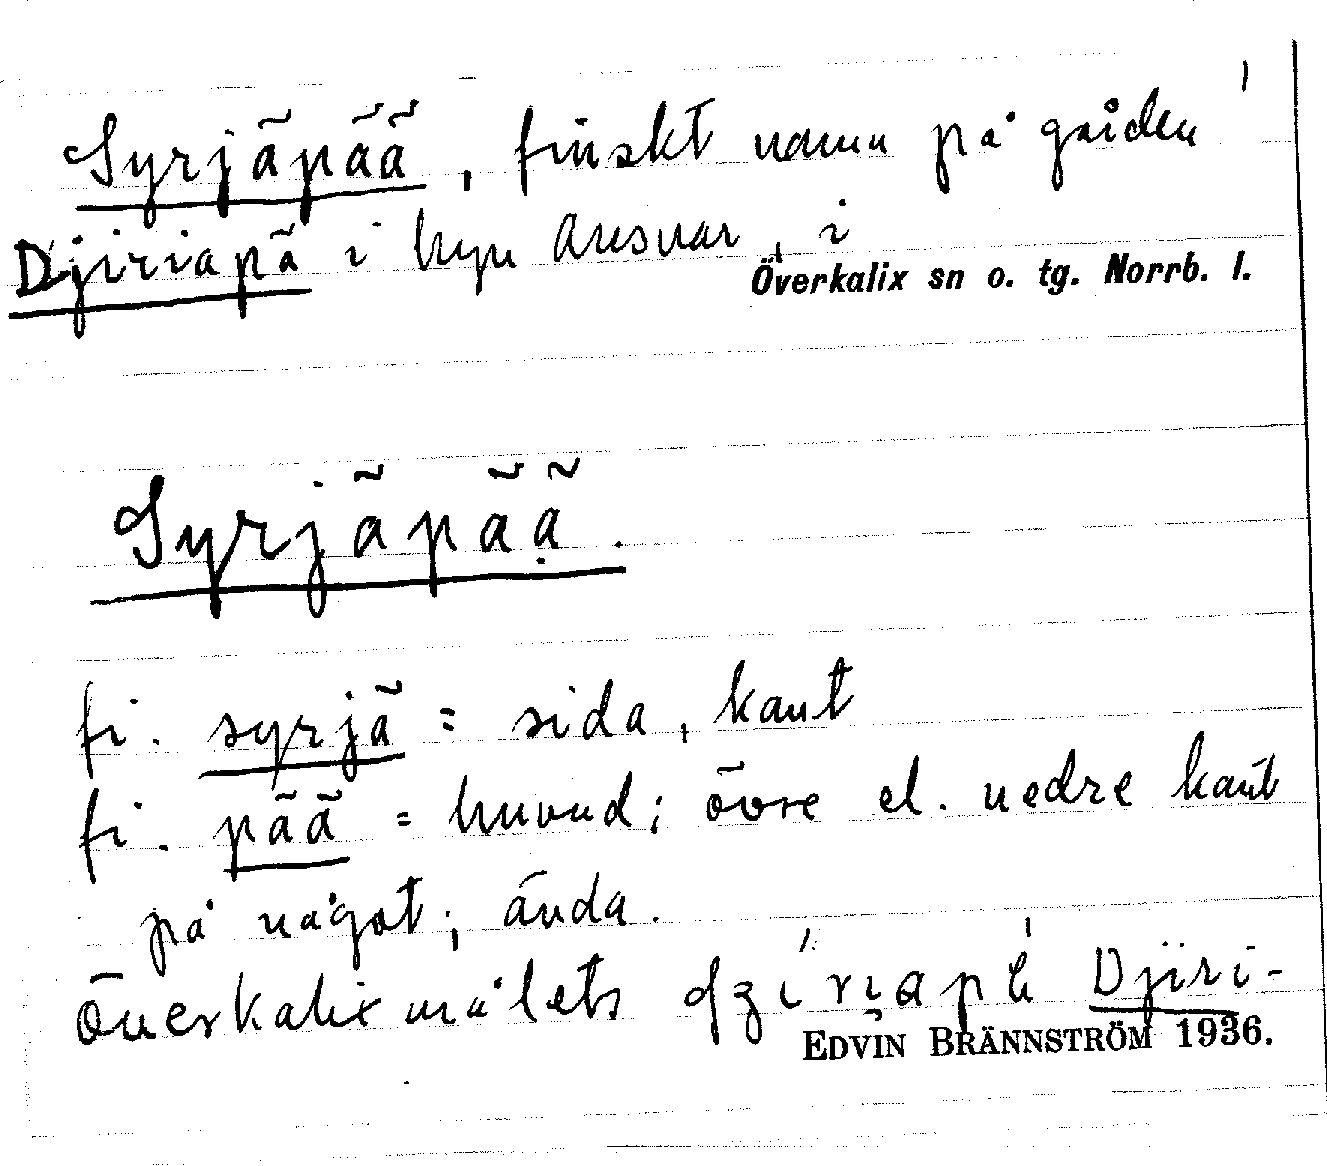 Syrjäpää, finskt namn på gården
Djiriapä i byn Ansvar, i
Överkalix sn o. tg. Norrb. l.
Syrjäpää.
fi. syrjä = sida, kant
fi. pää = huvud; övre el. nedre kant
på något; ända.
Överkalixmålets Djiri-
EDVIN BRÄNNSTRÖM 1936.